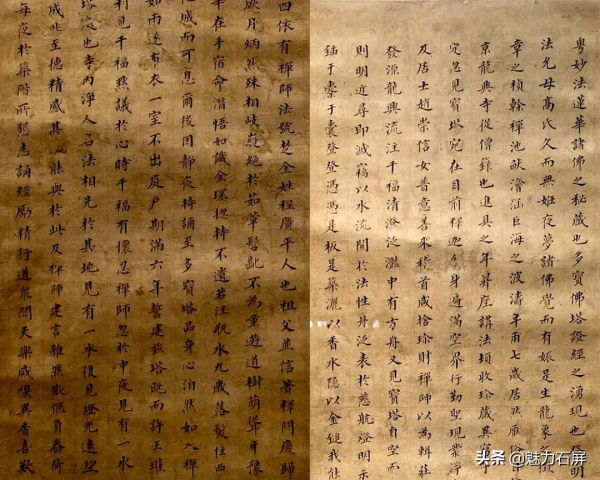 粤妙法蓮華諸佛之秘蔵也多寶佛塔證經之湧現也發明
法允母高氏久而無姙夜夢諸佛覺而有娠是生龍象之
章之楨幹禪池畎澮涵巨海之波濤年甫七歲居然厭俗
京龍興寺從僧籙也進具之年昇座講法頓收珍蔵異窮
定忽見寶塔宛在目前釋迦分身遍滿空界行勤聖現業淨
及居士趙崇信女普意善來稽首咸捨珎財禪師以為輯莊
發源龍興流注千福清澄泛灩中有方舟又見寶塔自空而
則明近尋即滅竊以水流開於法性舟泛表於慈航燈明示
鍤于橐于囊登登憑憑是板是築灑以香水隱以金鎚我能
四依有禪師法號楚金姓程廣平人也祖父並信著釋門慶歸
厥月炳然殊相岐嶷絕於茹葷髫齔不為童遊道樹萌牙聳豫
華在手宿命潛悟如識金環揔持不遺若注瓶水九歲落髮住西
化城而可息爾後因靜夜持誦至多寶塔品身心泊然如入禪
如雨遂布衣一室不出庭戶期滿六年誓建兹塔既而許王瓘
利見千福黙議於心時千福有懷忍禪師忽於中夜見有一水
塔處也寺內淨人名法相先於其地見有一水復見燈光遠望
成非至德精感其孰能與於此及禪師建言雜然歡愜負畚荷
每夜於築階所懇志誦經勵精行道衆聞天樂咸嗅異香喜歎
头条 @魅力石屏